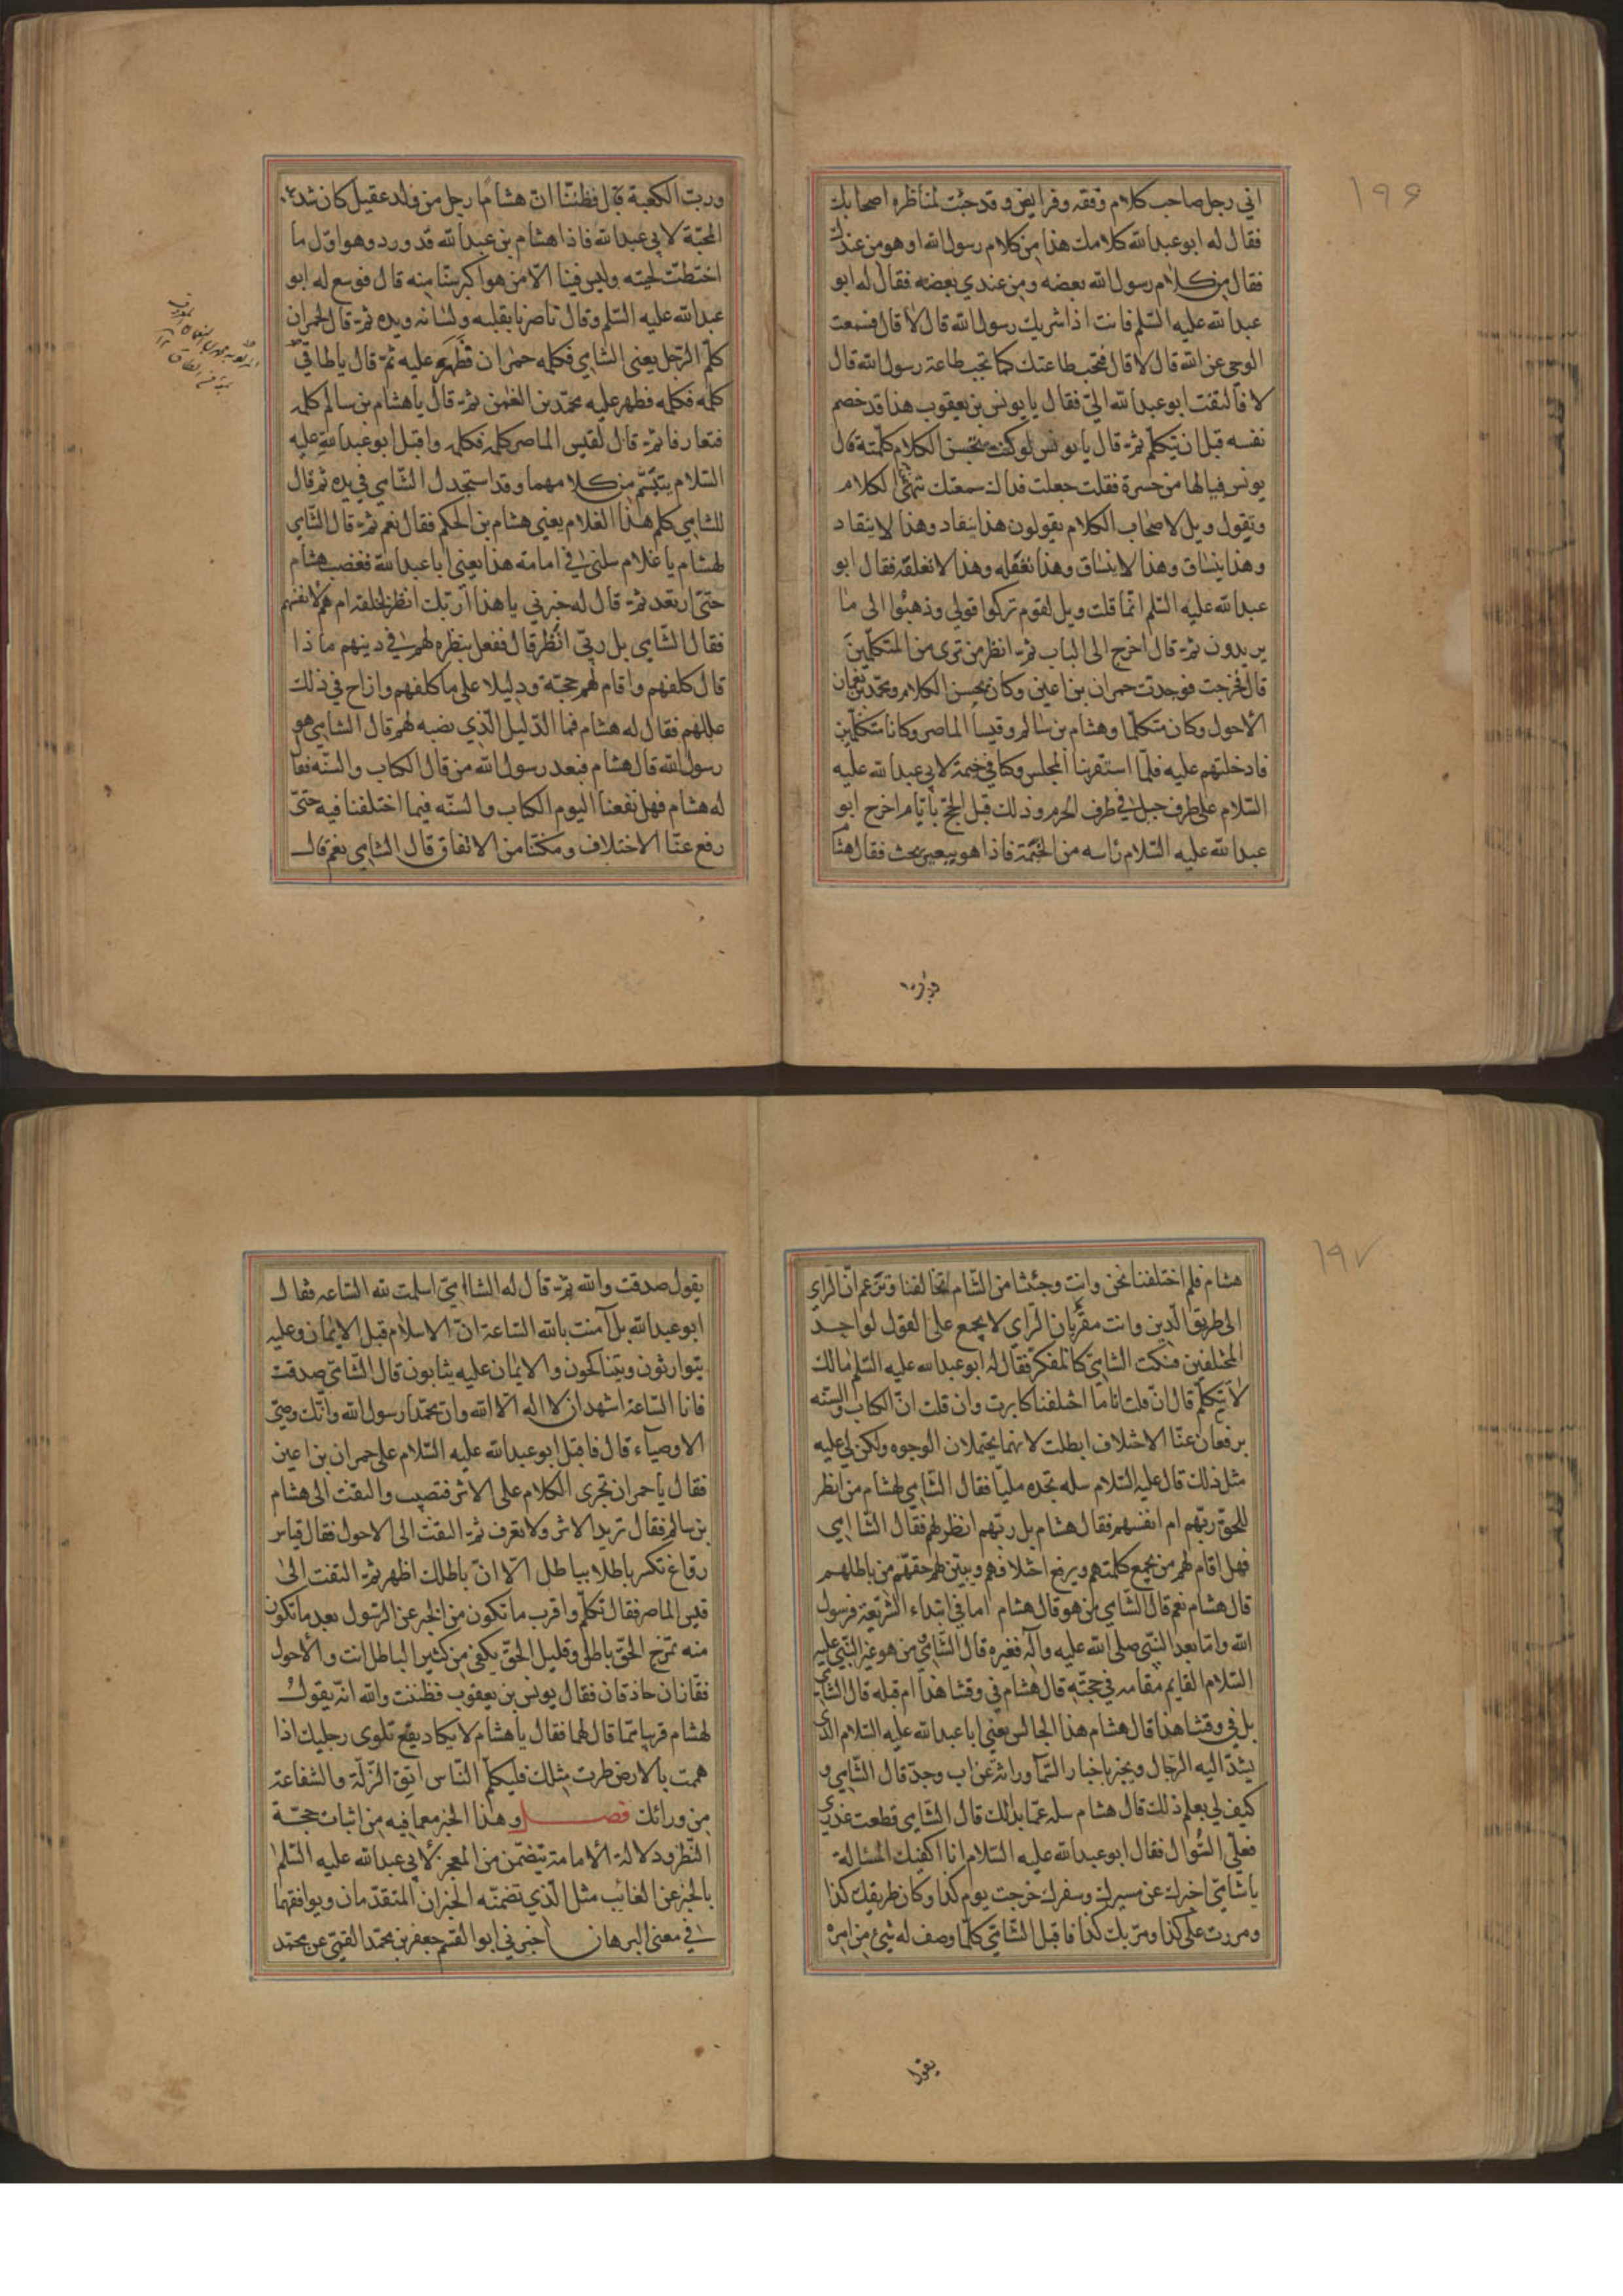 ١٩۶
اني رجل صاحب كلام وفقه وفرايض وقد جئت لمناظرة اصحابك
فقال له ابو عبدالله كلامك هذا من كلام رسول الله او هو من عندك
فقال من كلام رسول الله بعضه ومن عندي بعضه فقال له ابو
عبدالله عليه السلم فانت اذا شريك رسول الله قال لا قال فسمعت
الوحي عن الله قال لا قال فتجب طاعتك كما تجب طاعة رسول الله قال
لا فالتفت ابو عبدالله اليّ فقال يا يونس بن يعقوب هذا قد خصم
نفسه قبل ان يتكلم ثم قال يا يونس لو كنت تحسن الكلام كلمته قال
يونس فيالها من حسرة فقلت جعلت فداك سمعتك تنهى الكلام
وتقول ويل لاصحاب الكلام يقولون هذا ينقاد وهذا لا ينقاد
وهذا ينساق وهذا لا ينساق وهذا نعقله وهذا لا نعقله فقال ابو
عبدالله عليه السلم انما قلت ويل لقوم تركوا قولي وذهبوا الى ما
يريدون ثم قال اخرج الى الباب ثم انظر من ترى من المتكلمين
قال فخرجت فوجدت حمران بن اعين وكان يحسن الكلام ومحمد بن نعمان
الأحول وكان متكلما وهشام بن سالم وقيسا الماصر وكانا متكلمين
فادخلتهم عليه فلما استقر بنا المجلس وكنا في خيمة لابي عبدالله عليه
السلام على طرف جبل في طرف الحرم وذلك قبل الحج بأيام اخرج ابو
عبدالله عليه السلام رأسه من الخيمة فاذا هو ببعير يخب فقال هشام
ورب الكعبة قال فظننا ان هشاما رجل من ولد عقيل كان شديد
المحبة لابي عبدالله فاذا هشام بن عبدالله قد ورد وهو اول ما
اختطت لحيته وليس فينا الا من هو اكبر سنا منه قال فوسع له ابو
عبدالله عليه السلم وقال ناصرنا بقلبه ولسانه ويده ثم قال لحمران
كلم الرجل يعني الشامي فكلمه حمران فظهر عليه ثم قال يا طاقي
كلمه فكلمه فظهر عليه محمد بن النعمن ثم قال يا هشام بن سالم كلمه
فتعارفا ثم قال لقيس الماصر كلمه فكلمه واقبل ابو عبدالله عليه
السلام يتبسم من كلامهما وقد استجدل الشامي في يده ثم قال
للشامي كلم هذا الغلام يعني هشام بن الحكم فقال نعم ثم قال الشامي
لهشام يا غلام سلني في امامة هذا يعني ابا عبدالله فغضب هشام
حتى ارتعد ثم قال له خبرني يا هذا أربك انظر لخلقه ام هم لانفسهم
فقال الشامي بل ربي انظر قال ففعل بنظره لهم في دينهم ماذا
قال كلفهم واقام لهم حجة ودليلا على ما كلفهم وازاح في ذلك
عللهم فقال له هشام فما الدليل الذي نصبه لهم قال الشامي هو
رسول الله قال هشام فبعد رسول الله من قال الكتاب والسنة فقال
له هشام فهل نفعنا اليوم الكتاب والسنه فيما اختلفنا فيه حتى
رفع عنا الاختلاف ومكننا من الاتفاق قال الشامي نعم قال
١٩٧
هشام فلم اختلفنا نحن وانت وجئتنا من الشام تخالفنا وتزعم ان الراي
الى طريق الدين وانت مقر بان الراي لا يجمع على القول لواحد
المختلفين فسكت الشامي كالمفكر فقال له ابو عبدالله عليه السلم مالك
لا تتكلم قال ان قلت انا ما اختلفنا كابرت وان قلت ان الكتاب والسنه
يرفعان عنا الاختلاف ابطلت لانهما يحتملان الوجوه ولكن لي عليه
مثل ذلك قال عليه السلام سله تجده مليا فقال الشامي لهشام من انظر
للخلق ربهم ام انفسهم فقال هشام بل ربهم انظر لهم فقال الشامي
فهل اقام لهم من يجمع كلمتهم ويرفع اختلافهم ويبين لهم حقهم من باطلهم
قال هشام نعم قال الشامي من هو قال هشام اما في ابتداء الشريعة فرسول
الله واما بعد النبي صلى الله عليه وآله فغيره قال الشامي من هو غير النبي عليه
السلام القايم مقامه في حجته قال هشام في وقتنا هذا ام قبله قال الشامي
بل في وقتنا هذا قال هشام هذا الجالس يعني ابا عبدالله عليه السلام الذي
يشد اليه الرحال ويخبر باخبار السما وراثة عن اب وجد قال الشامي و
كيف لي بعلم ذلك قال هشام سله عما بدا لك قال الشامي قطعت عذري
فعلي السؤال فقال ابو عبدالله عليه السلام انا اكفيك المسالة
يا شامي اخبرك عن مسيرك وسفرك خرجت يوم كذا وكان طريقك كذا
ومررت على كذا ومر بك كذا فاقبل الشامي كلما وصف له شيئ من امره
يقول
يقول صدقت والله ثم قال له الشامي اسلمت لله الساعه فقال
ابو عبدالله بل آمنت بالله الساعة ان الاسلام قبل الايمان وعليه
يتوارثون ويتناكحون والايمان عليه يثابون قال الشامي صدقت
فانا الساعة اشهد ان لا اله الا الله وان محمدا رسول الله وانك وصي
الاوصياء قال فاقبل ابو عبدالله عليه السلام على حمران بن اعين
فقال يا حمران تجرى الكلام على الاثر فتصيب والتفت الى هشام
بن سالم فقال تريد الاثر ولا تعرف ثم التفت الى الاحول فقال قياس
رواغ تكسر باطلا بباطل الا ان باطلك اظهر ثم التفت الى
قيس الماصر فقال تكلم واقرب ما تكون من الخبر عن الرسول بعد ما تكون
منه تمزج الحق باطل وقليل الحق يكفي من كثير الباطل انت والأحول
قفازان حاذقان فقال يونس بن يعقوب فظننت والله انه يقول
لهشام قريبا مما قال لهما فقال يا هشام لا يكاد يقع تلوى رجليك اذا
هممت بالارض طرت مثلك فليكلم الناس اتق الزلة والشفاعة
من ورائك فصل وهذا الخبر مع ما فيه من اثبات حجة
النظر ودلالة الأمامة يتضمن من المعجز لأبي عبدالله عليه السلم
بالخبر عن الغائب مثل الذي تضمنه الخبران المتقدمان ويوافقهما
في معنى البرهان اخبرني ابو القسم جعفر بن محمد القمي عن محمد